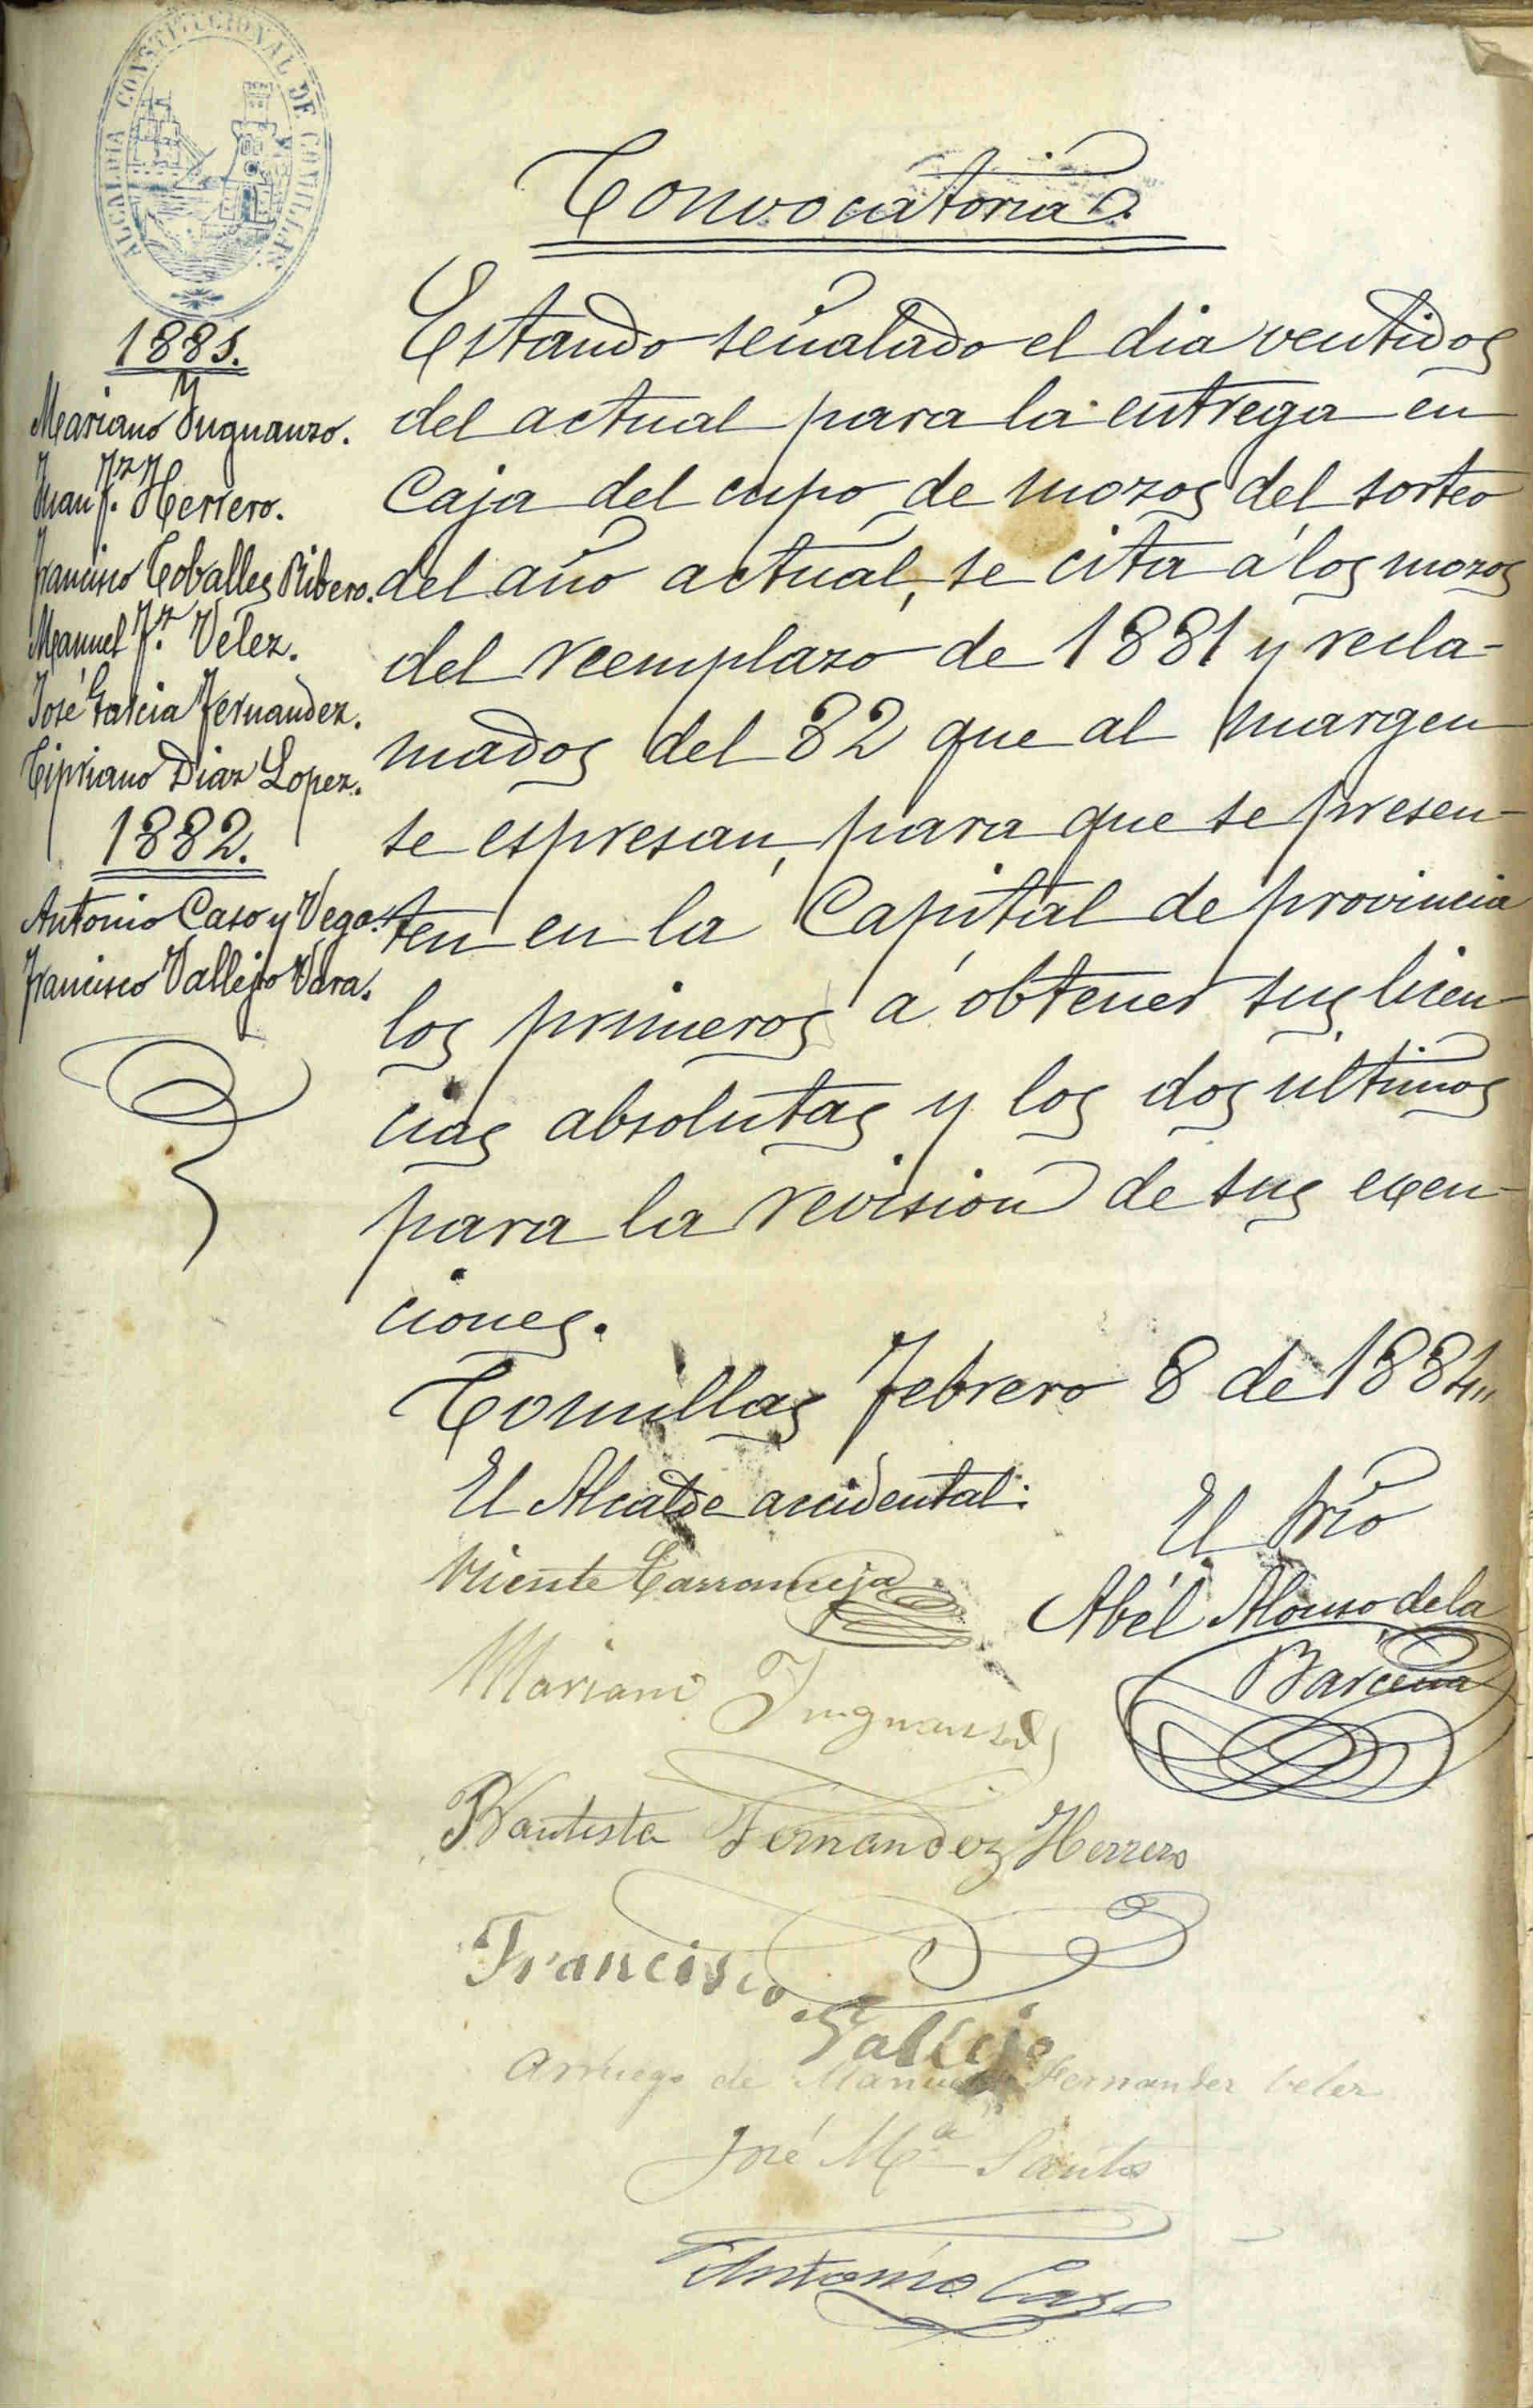 ALCALDIA CONSTITUCIONAL DE COMILLAS
Convocatoria.
1881.
Mariano Inguanzo.
Juan Fz. Herrero.
Francisco Coballes Ribero.
Manuel Fz. Vélez.
José Garcia Fernandez.
Cipriano Diaz Lopez.
1882.
Antonio Caso y Vega.
Francisco Vallejo Vara.
Estando señalado el dia ventidos
del actual para la entrega en
Caja del cupo de mozos del sorteo
del año actual, se cita á los mozos
del reemplazo de 1881 y recla-
mados del 82 que al margen
se espresan, para que se presen-
ten en la Capital de provincia
los primeros á obtener sus licen-
cias absolutas y los dos últimos
para la revision de sus exen-
ciones.
Comillas Febrero 8 de 1884,,
El Alcalde accidental:
Vicente Carranceja
El Srio
Abél Alonso de la
Barcena
Mariano Inguanzo
Bautista Fernandez Herrero
Francisco
Vallejo
Arruego de Manuel Fernandez Velez
José Mª Santos
Antonio Caso